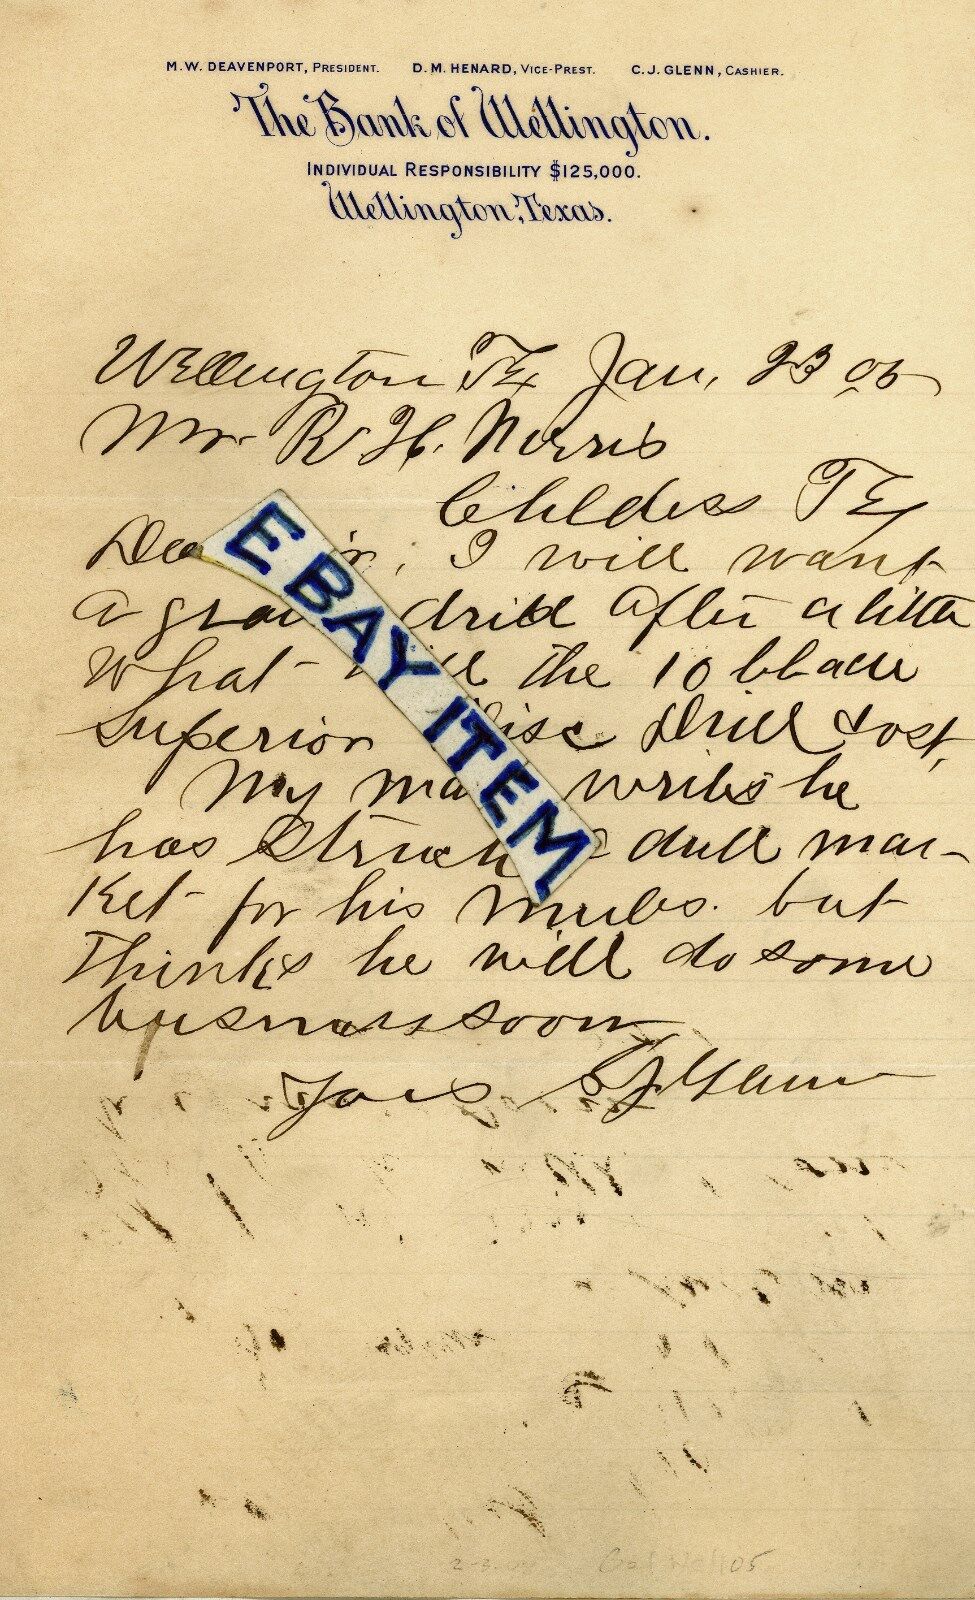 M.W. DEAVENPORT, PRESIDENT. D.M. HENARD, VICE-PREST. C.J. GLENN, CASHIER.
The Bank of Wellington.
INDIVIDUAL RESPONSIBILITY $125,000.
Wellington, Texas.
Wellington Tex Jan. 23 05
Mr. R H. Norris
Childess Tex
Dea ir, I will want
a grai drill after a little
What will the 10 blade
Superior Disc Drill cost,
My ma writes he
has struck a dull mar-
ket for his mules. but
thinks he will do some
business soon
Yours CJ Glenn
EBAY ITEM